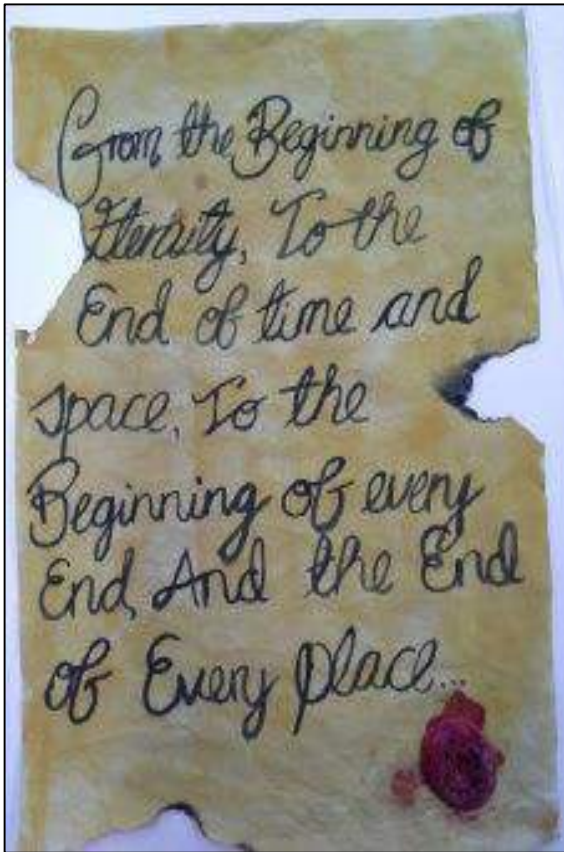 From the Beginning of
Eternity, To the
End of time and
space, To the
Beginning of every
End, And the End
of Every place...